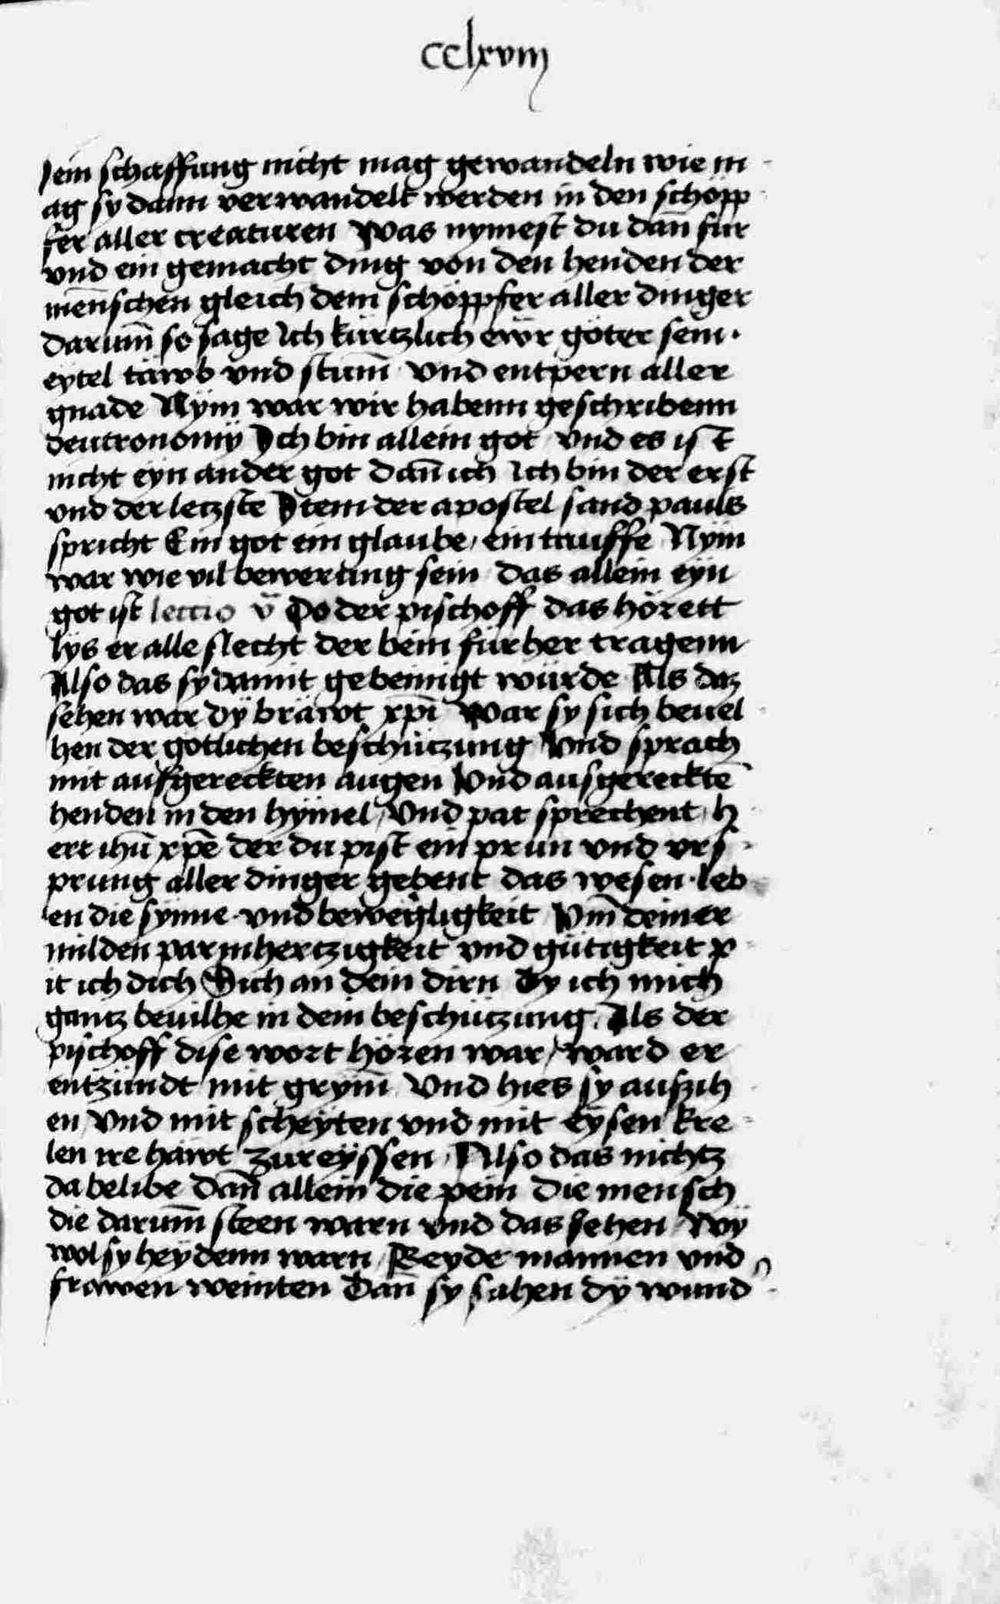 cclxviij
sein schaffung nicht mag gewandeln wie m
ag sy dann verwandelt werden in den schöpp
fer aller creaturen Was nymest du dan̄ für
vnd ein gemacht ding von den henden der
men̄schen gleich dem schöppfer aller dinger
darum̄ so sage ich kürtzlich ewr göter sein
eytel tawb vnd stum̄ vnd entpern aller
gnade Nÿm war wir habenn geschribenn
deutronomÿ Ich bin allein got vnd es ist
nicht eyn ander got dan̄ ich Ich bin der erst
vnd der letzste Item der apostel sand pauls
spricht Ein got ein glaube ein tauffe Nÿm
war wie vil bewerung sein das allein eyn
got ist lectio v̄ Do der pischoff das hörett
lÿs er alle slecht der bein für her tragenn
Also das sy damit gebeinigt würde Als daz
sehen war dÿ bräwt xp̄i War sy sich beuel
hen der götlichen beschützung Vnd sprach
mit aufgereckten augen Vnd ausgereckte̅
henden in den hÿmel Vnd pat sprechent h
err ih̄u xp̄e der du pist ein prun vnd vrs
prung aller dinger gebent das wesen leb
en die synne vnd beweigligkeit Vm̄ deiner
milden parmhertzigkeit vnd gütigkeit p
it ich dich Sich an dein dirn Dy ich mich
gantz beuilhe in dein beschützung Als der
pischoff dise wort hören war ward er
entzündt mit grym̄ Vnd hies sy auszih
en Vnd mit scheyten vnd mit eÿsen kre
len ire häwt zureÿssen Also das nichtz
da belibe dan̄ allein die pein die mensch
die darum̄ steen warn vnd das sehen Wÿ
wol sy heydenn warn Beyde mannen vnd
frawen weinten Dan̄ sy sahen dÿ wund